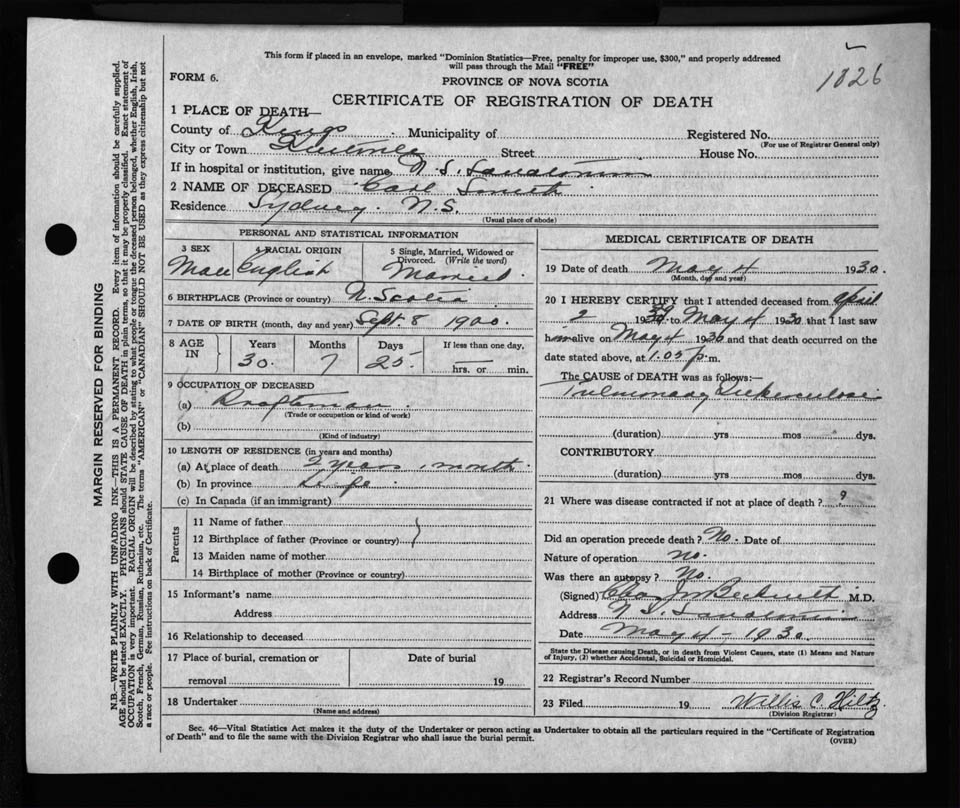 This form if placed in an envelope, marked "Dominion Statistics—Free, penalty for improper use, $300," and properly addressed
will pass through the Mail "FREE"
1826
FORM 6.
PROVINCE OF NOVA SCOTIA
CERTIFICATE OF REGISTRATION OF DEATH
1 PLACE OF DEATH—
County of Kings Municipality of Registered No.
(For use of Registrar General only)
City or Town Kentville Street House No.
If in hospital or institution, give name N. S. Sanatorium
2 NAME OF DECEASED Carl Smith
Residence Sydney. N.S.
(Usual place of abode)
PERSONAL AND STATISTICAL INFORMATION
3 SEX 4 RACIAL ORIGIN 5 Single, Married, Widowed or
Divorced. (Write the word)
Male English Married.
6 BIRTHPLACE (Province or country) N. Scotia
7 DATE OF BIRTH (month, day and year) Sept. 8 1900.
8 AGE IN Years Months Days If less than one day,
30. 7 25. hrs. or min.
9 OCCUPATION OF DECEASED
(a) Draftsman.
(Trade or occupation or kind of work)
(b)
(Kind of industry)
10 LENGTH OF RESIDENCE (in years and months)
(a) At place of death 2 years 1 month
(b) In province Life
(c) In Canada (if an immigrant)
Parents
11 Name of father
12 Birthplace of father (Province or country)
13 Maiden name of mother
14 Birthplace of mother (Province or country)
15 Informant's name
Address
16 Relationship to deceased
17 Place of burial, cremation or Date of burial
removal 19
18 Undertaker
(Name and address)
MEDICAL CERTIFICATE OF DEATH
19 Date of death May 4 1930.
(Month, day and year)
20 I HEREBY CERTIFY that I attended deceased from April
2 1930 to May 4 1930 that I last saw
him alive on May 4 1930 and that death occurred on the
date stated above, at 1.05 p. m.
The CAUSE of DEATH was as follows:—
Pulmonary Tuberculosis
(duration) yrs mos dys.
CONTRIBUTORY
(duration) yrs mos dys.
21 Where was disease contracted if not at place of death? ?
Did an operation precede death? No. Date of
Nature of operation no.
Was there an autopsy? No.
(Signed) Chas J. Beckwith M.D.
Address N.S. Sanatorium
Date May 4 - 1930.
State the Disease causing Death, or in death from Violent Causes, state (1) Means and Nature
of Injury, (2) whether Accidental, Suicidal or Homicidal.
22 Registrar's Record Number
23 Filed 19 Willis C. Hiltz
(Division Registrar)
Sec. 46—Vital Statistics Act makes it the duty of the Undertaker or person acting as Undertaker to obtain all the particulars required in the "Certificate of Registration
of Death" and to file the same with the Division Registrar who shall issue the burial permit.
(OVER)
MARGIN RESERVED FOR BINDING
N.B.—WRITE PLAINLY WITH UNFADING INK—THIS IS A PERMANENT RECORD. Every item of information should be carefully supplied.
AGE should be stated EXACTLY. PHYSICIANS should STATE CAUSE OF DEATH in plain terms, so that it may be properly classified. Exact statement of
OCCUPATION is very important. RACIAL ORIGIN will be described by stating to what people or tongue the deceased person belonged, whether English, Irish,
Scotch, French, German, Russian, Ruthenian, etc. The terms "AMERICAN" or "CANADIAN" SHOULD NOT BE USED as they express citizenship but not
a race or people. See instructions on back of Certificate.